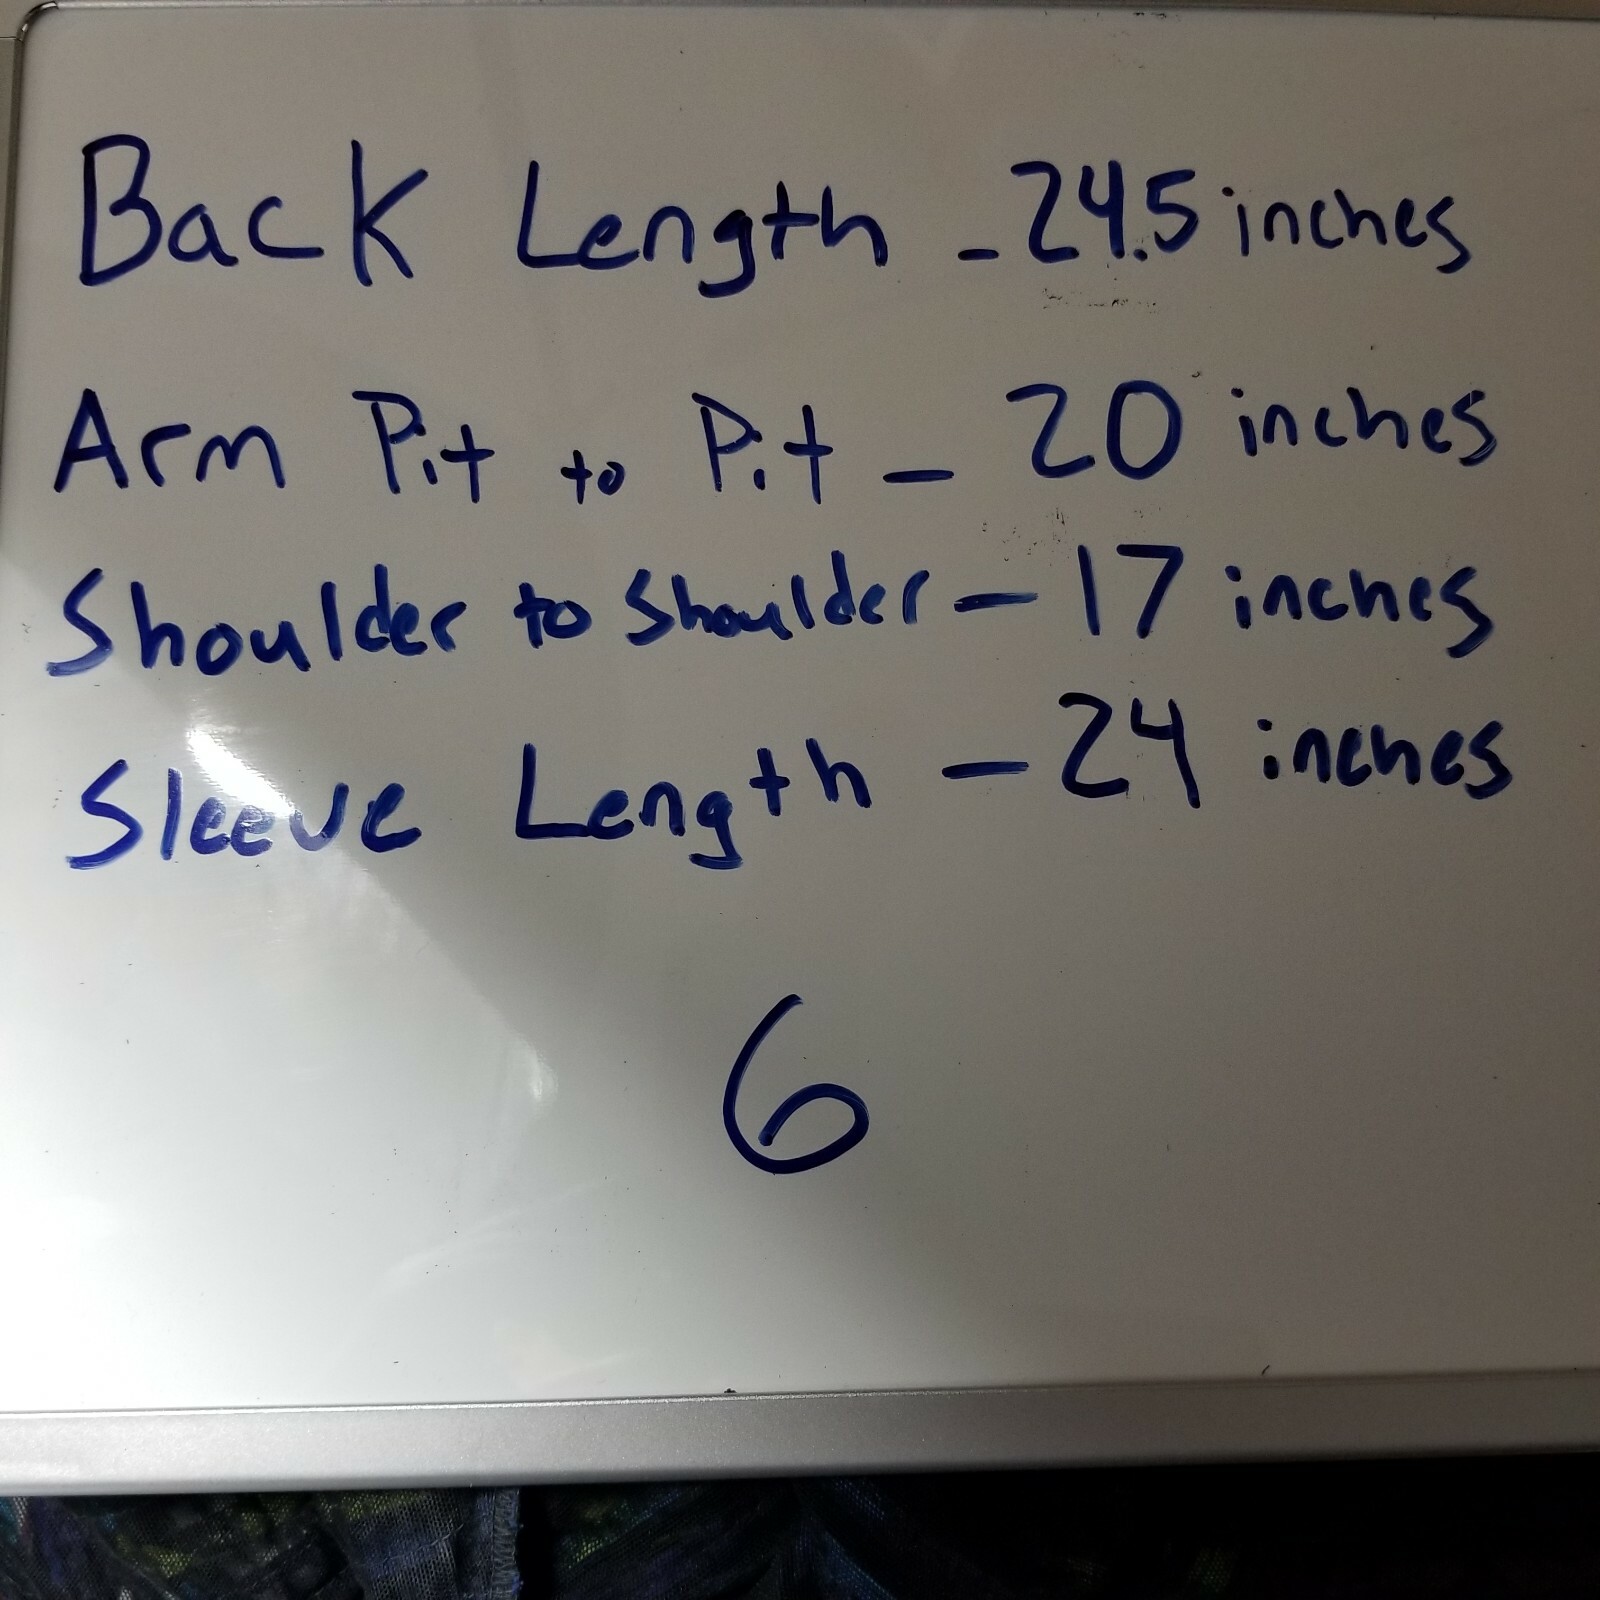 Back Length - 24.5 inches
Arm Pit to Pit - 20 inches
Shoulder to Shoulder - 17 inches
Sleeve Length - 24 inches
6